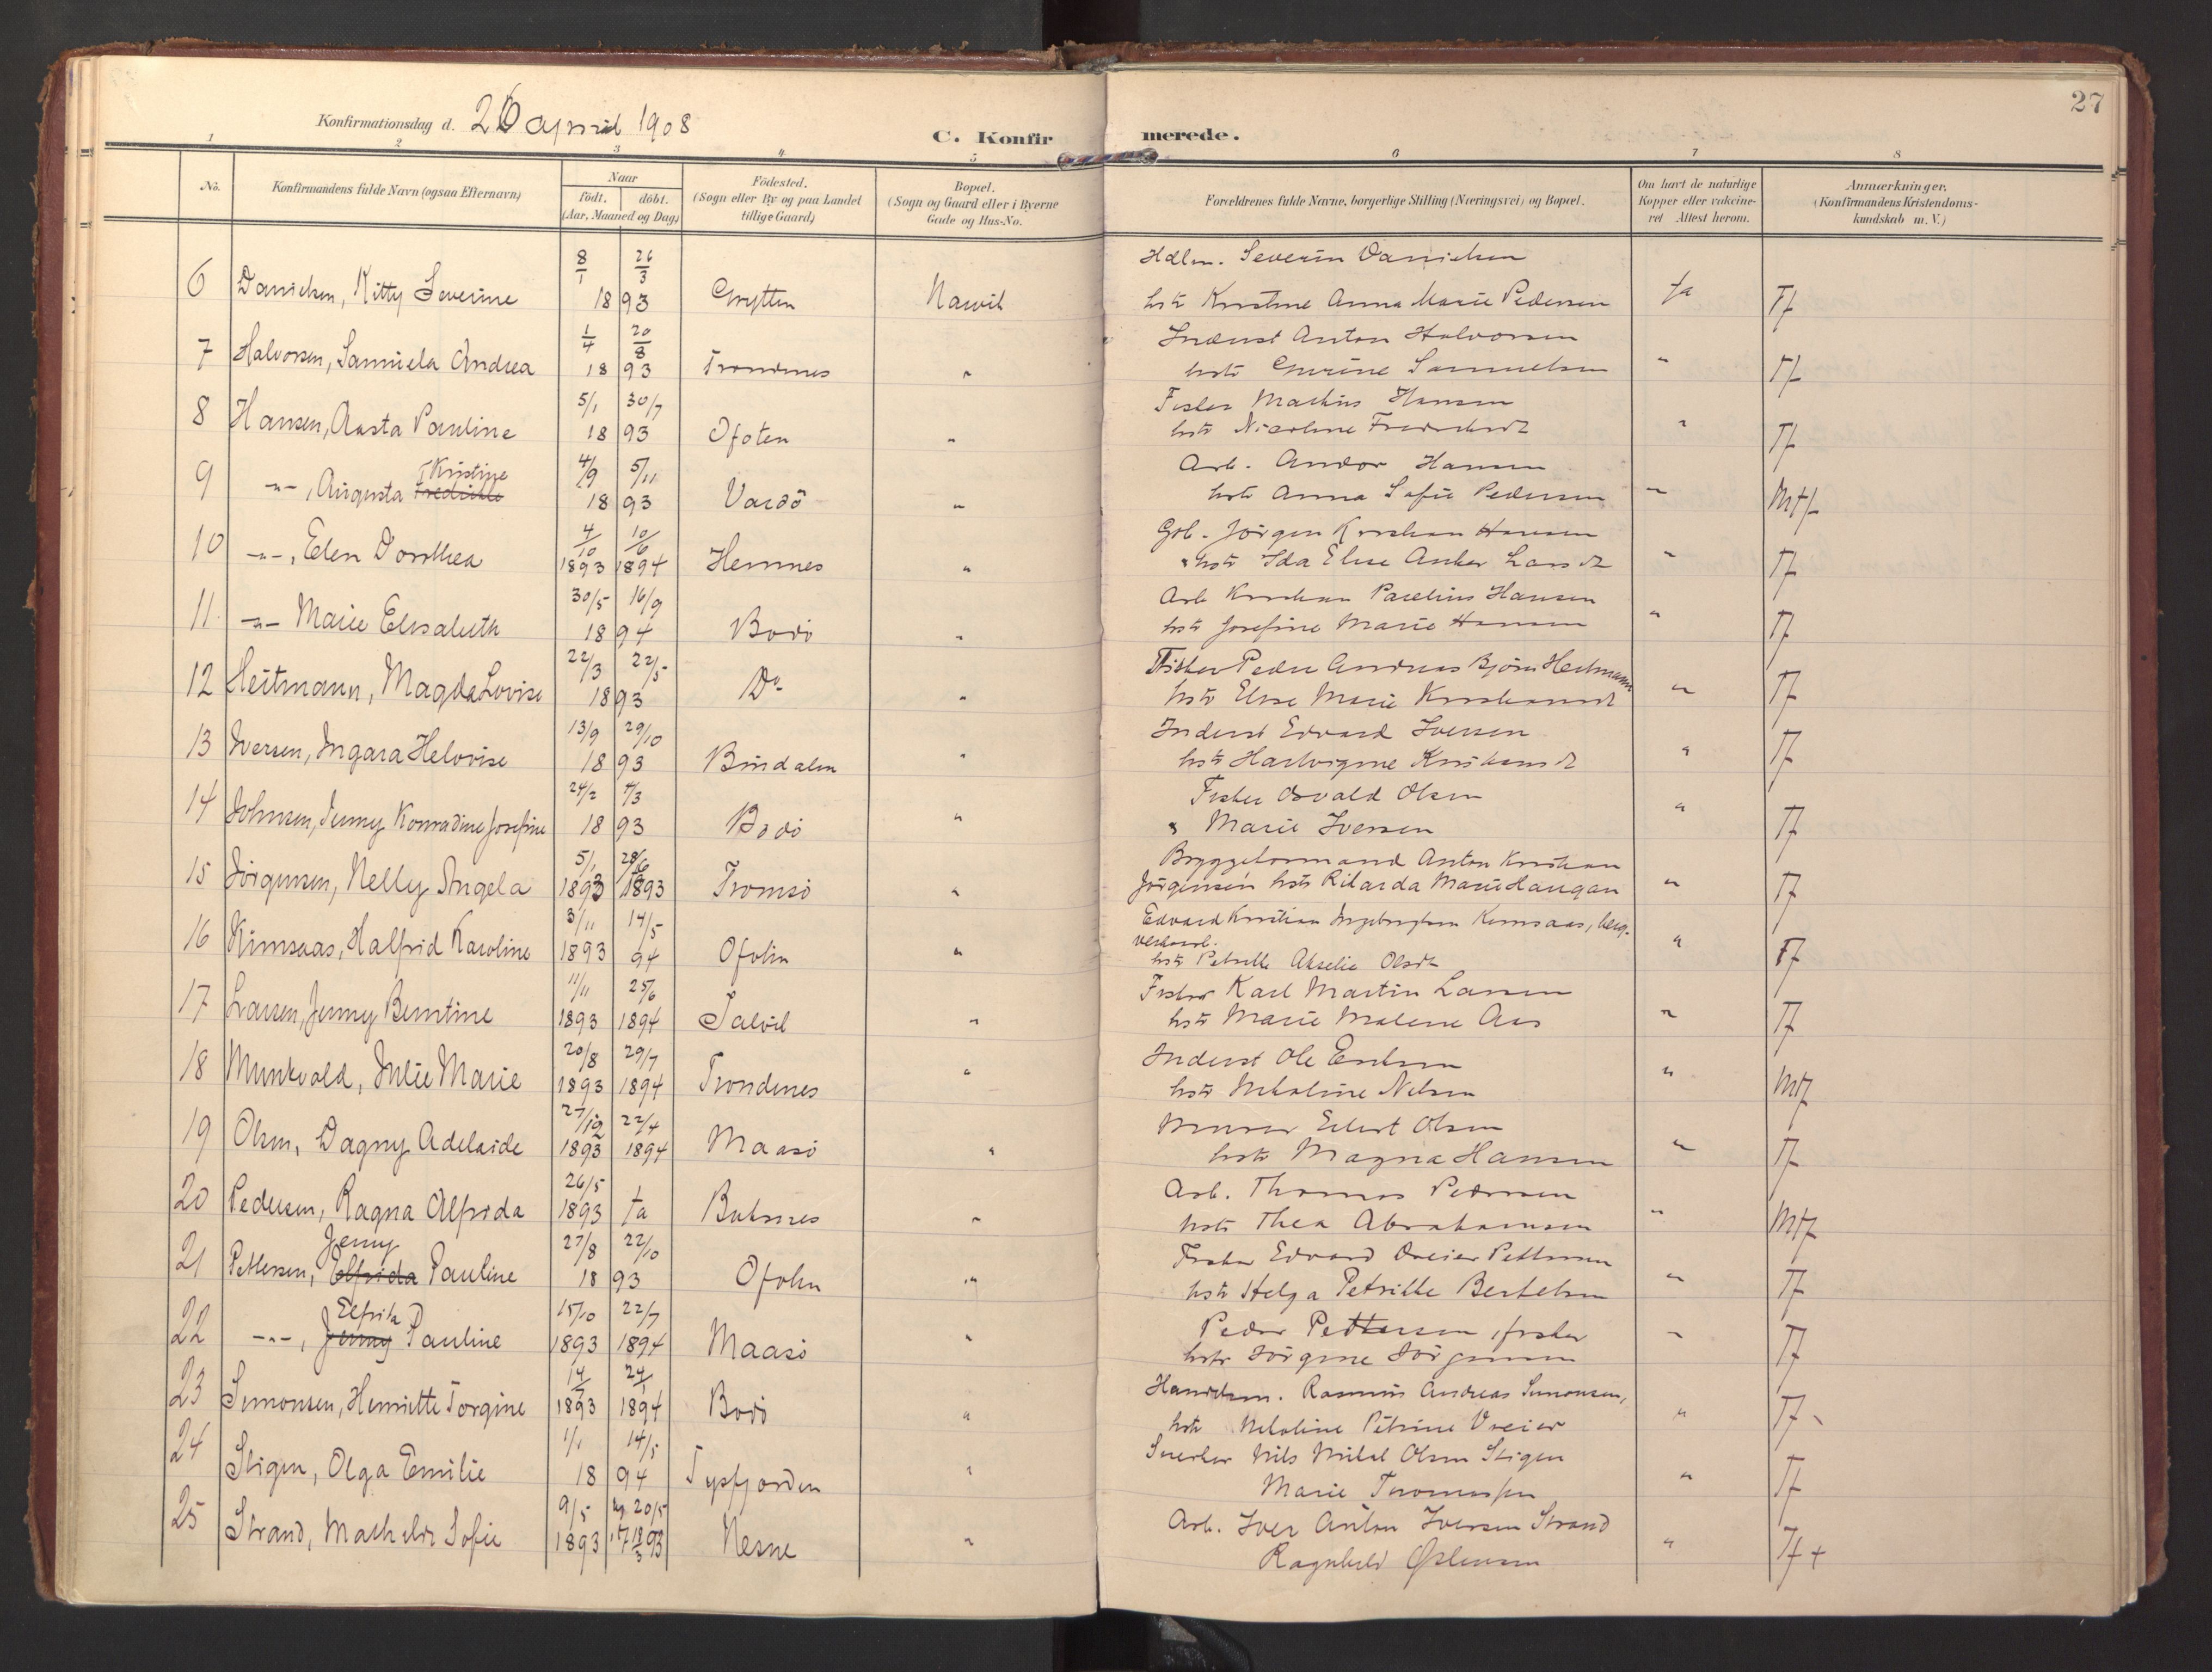 27
Konfirmationsdag d. 26 april 1908
C. Konfirmerede.
1 2 3 4 5 6 7 8
No.
Konfirmandens fulde Navn (ogsaa Efternavn)
Naar
födt. döbt.
(Aar, Maaned og Dag)
Födested.
(Sogn eller By og paa Landet
tillige Gaard)
Bopæl.
(Sogn og Gaard eller i Byerne
Gade og Hus-No.
Forældrenes fulde Navne, borgerlige Stilling (Næringsvei) og Bopæl.
Om havt de naturlige
Kopper eller vakcine-
ret Attest herom.
Anmærkninger.
(Konfirmandens Kristendoms-
kundskab m. V.)
8/1 26/3 Hdlm. Severin Danielsen
6 Danielsen, Kitty Severine 1893 Narvik hstr Kristine Anna Marie Pedersen ja Tf
1/4 20/8 Inderst Anton Halvorsen
7 Halvorsen, Samuela Andrea 1893 Trondenes " hstr Samuelsen " Tf
5/1 30/7 Fisker Markus Hansen
8 Hansen, Aasta Pauline 1893 Ofoten " hstr Nicoline " Tf
Kristine 4/9 5/11 Arb. Andor Hansen
9 -"-, Augusta Fredrikke 1893 Vardö " hstr Anna Sofie Pedersen " Mtf
4/10 10/6 Gbr. Jörgen Kristian Hansen
10 -"-, Elen Dorthea 1893 1894 Hemnes " hstr Ida Elise Anker Larsdt " Tf
30/5 16/9 Arb Kristian Parelius Hansen
11 -"- Marie Elisabeth 1894 Bodö " hstr Josefine Marie Hansen " Tf
22/3 22/5 Fisker Peder Andreas Björn Heitmann
12 Heitmann, Magda Lovise 1893 Do " hstr Elise Marie Kristiansdt " Tf
13/9 29/10 Inderst Edvard Iversen
13 Iversen, Ingara Helovise 1893 Bindalen " hstr Hartvigine Kristiansdt " Tf
24/2 4/3 Fisker Osvald Olsen
14 Johnsen, Jenny Konradine Josefine 1893 Bodö " Marie Iversen " Tf
5/1 28/6 Bryggeformand Anton Kristian
15 Jörgensen, Nelly Angela 1893 1893 Tromsö " Jörgensen hstr Rikarda Marie Haugan " Tf
3/11 14/5 Edvard Kristian Ingebrigtsen Kimsaas, berg-
verksarb.
16 Kimsaas, Halfrid Karoline 1893 94 Ofoten " hstr Petrille Akselie Olsdtr " Tf
11/11 25/6 Fisker Karl Martin Larsen
17 Larsen, Jenny Berntine 1893 1894 Talvik " hstr Marie Malene Aas " Tf
20/8 29/7 Inderst Ole Eriksen
18 Munkvold, Julie Marie 1893 1894 Trondenes " hstr Nikoline Nilsen " Mtf
27/12 22/4 Murer Edvert Olsen
19 Olsen, Dagny Adelaide 1893 1894 Maasö " hstr Magna Hansen " Tf
26/5 Arb. Thomas Pedersen
20 Pedersen, Ragna Alfrida 1893 ja " hstr Thea Abrahamsen " Mtf
Jenny 27/8 22/10 Fisker Edvard Dreier Pettersen
21 Pettersen, Elfrida Pauline 1893 Ofoten " hstr Helga Petrikke Bertelsen " Tf
Elfrida 15/10 22/7 Peder Pettersen, fisker
22 -"-, Jenny Pauline 1893 1894 Maasö " hstr Jörgine Jörgensen " Tf
14/7 24/1 Handelsm. Rasmus Andreas Simonsen,
23 Simonsen, Henriette Torgine 1893 1894 Bodö " hstr Nikoline Petrine Dreier " Tf
1/1 14/5 Snerker Nils Mikal Olsen Stigen
24 Stigen, Olga Emilie 1894 Tysfjorden " Marie Thomassen " Tf
9/5 20/5 Arb. Iver Anton Iversen Strand
25 Strand, Mathilde Sofie 1893 93 Nesne " Ragnhild " Tf +